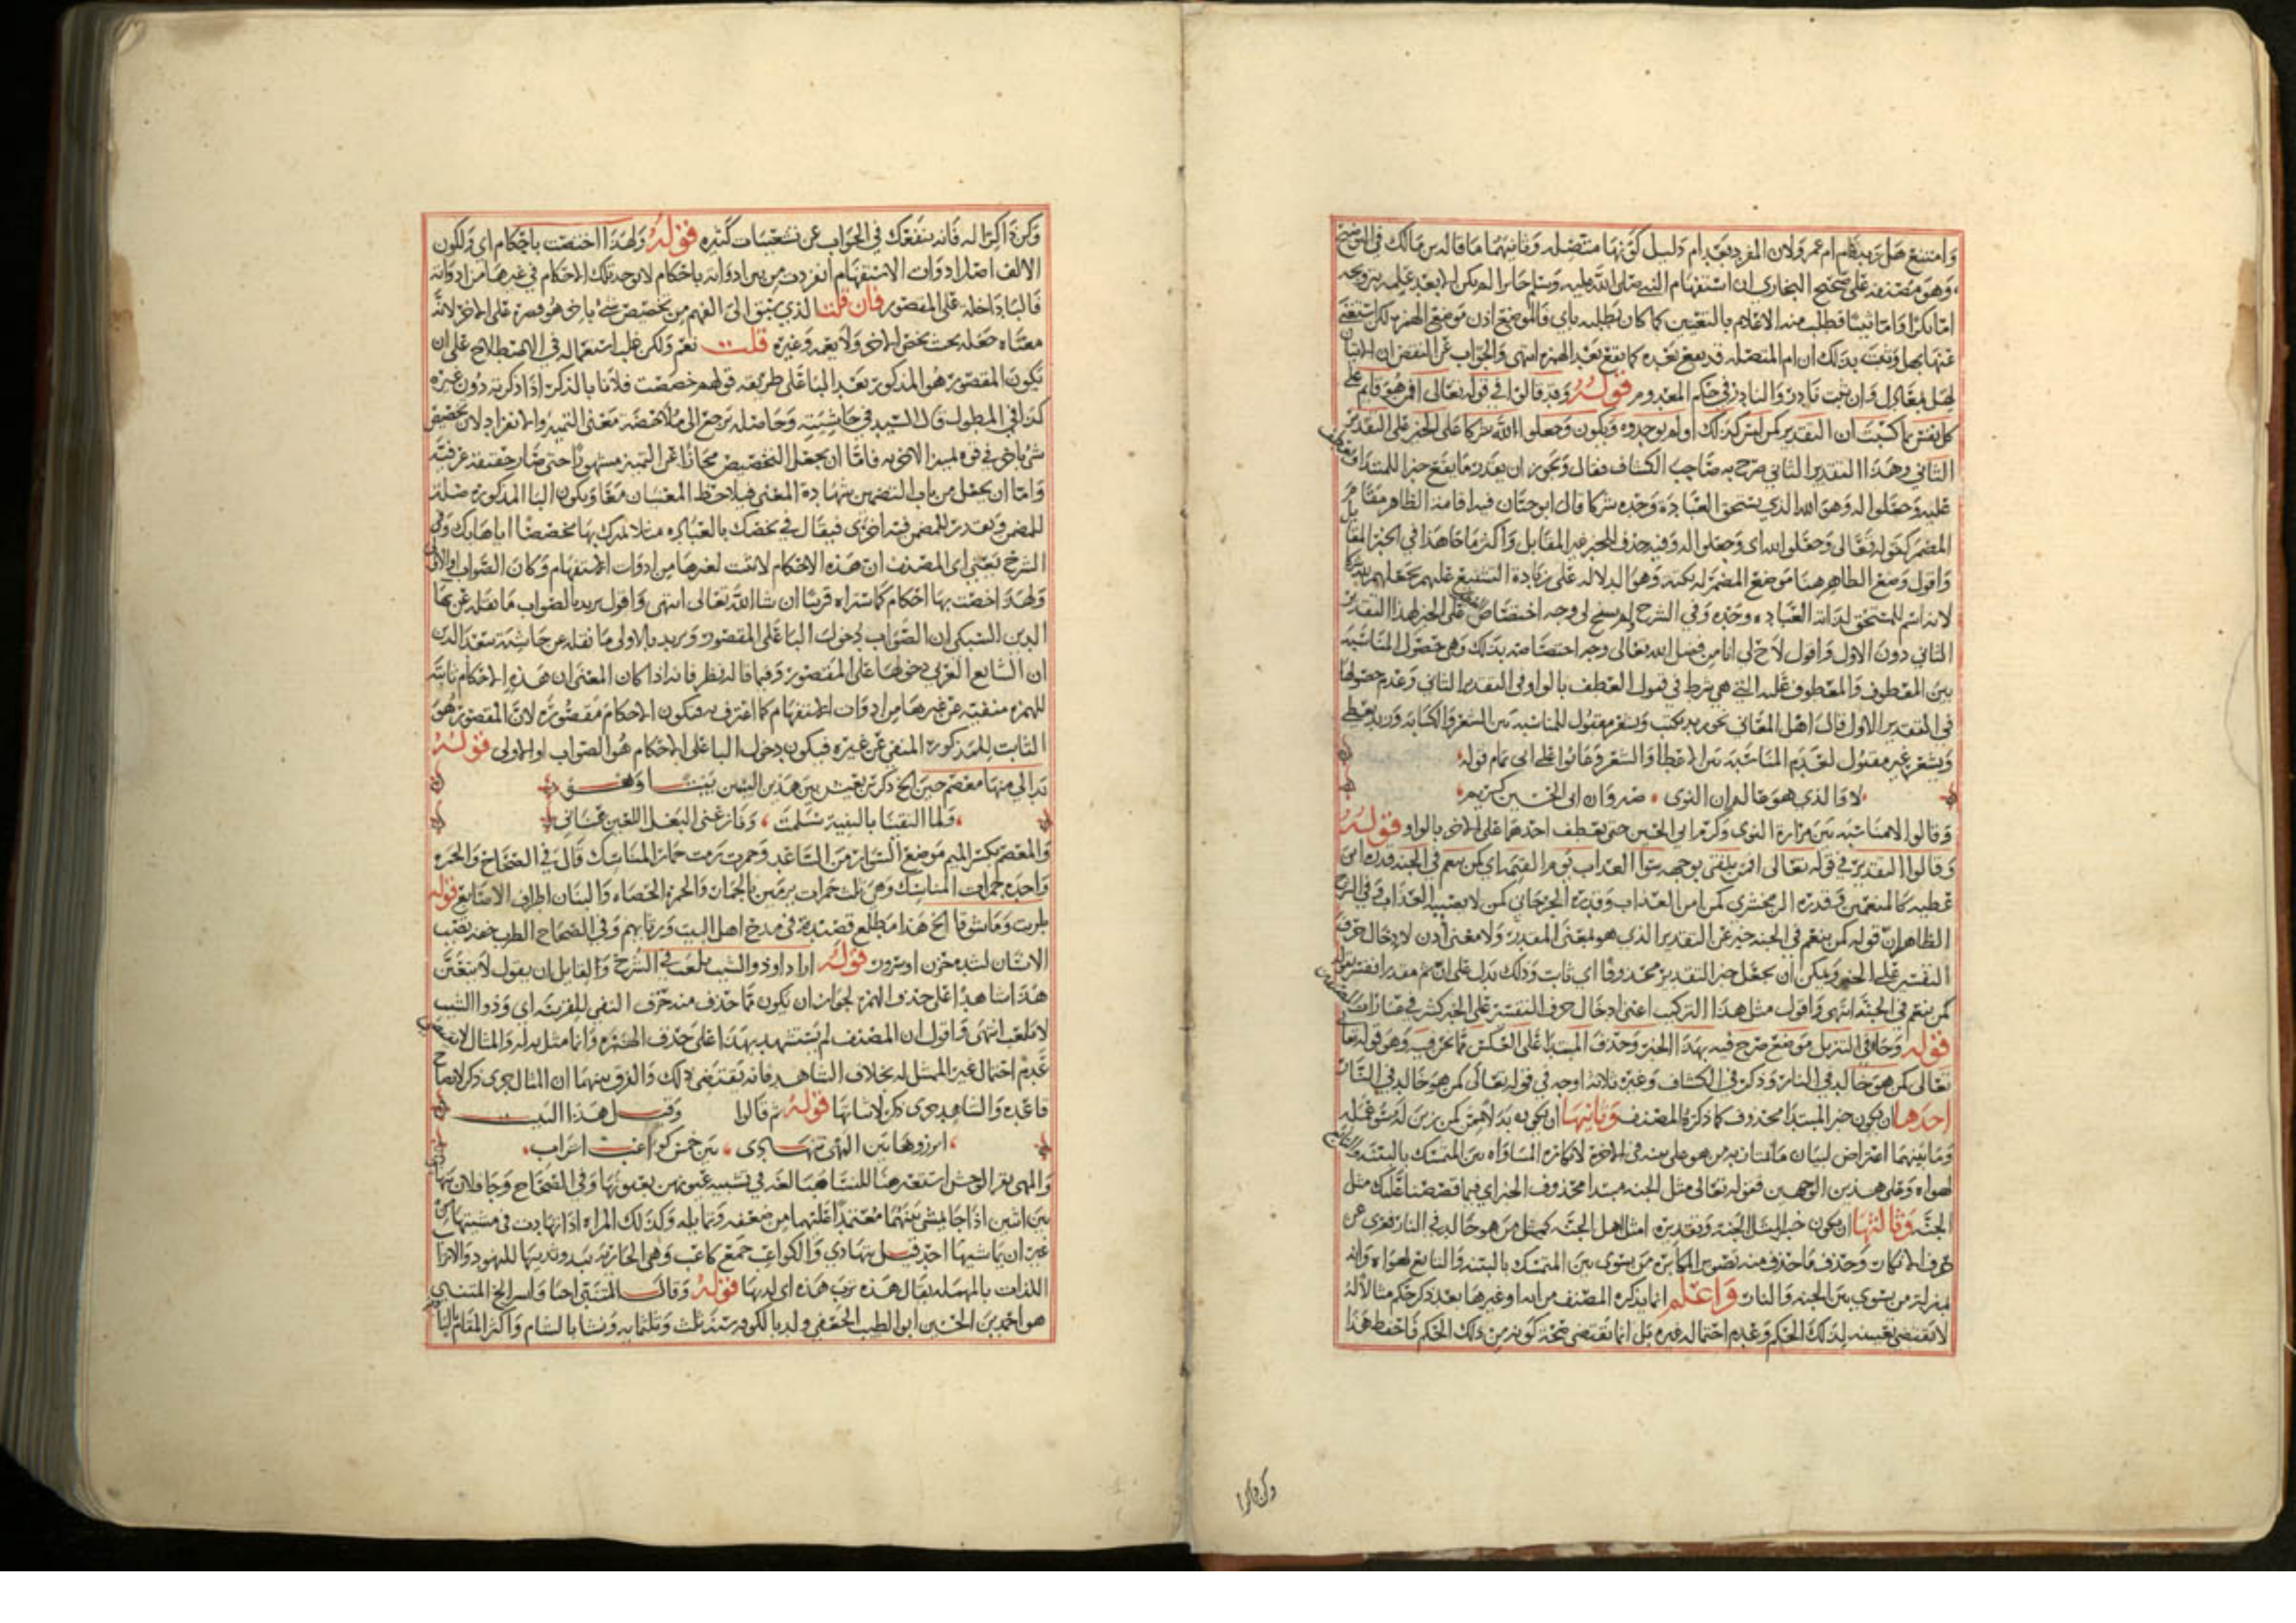 وامتنع هل زيد قام ام عمرو لان المفرد بعد ام دليل كونها متصله وثانيهما ما قاله بن مالك في التوضيح
وهو مصنفه على صحيح البخاري ان استفهام النبي صلى الله عليه وسلم جابرا لم يكن الا بعد علمه بتزويجه
اما بكرا واما ثيبا فطلب منه الاعلام بالتعيين كما كان يطلب باي فالموضع اذن موضع الهمزه لكن استغنى
عنها بهل وثبت بذلك ان ام المتصله قد يقع بعد هل كما يقع بعد الهمزه انتهى والجواب عن النقض ان الاتيان
لهل بمعادل وان ثبت نادر والنادر في حكم المعدوم قوله وقد قالوا في قوله تعالى افمن هو قايم على
كل نفس بما كسبت ان التقدير كمن ليس كذلك او لم يوحدوه ويكون وجعلوا لله شركا على الخبر على التقدير
الثاني وهذا التقدير الثاني صرح به صاحب الكشاف فقال ويجوز ان يقدر ما يقع خبرا للمبتدا ويعطف
عليه وجعلوا له وهو الله الذي يستحق العبادة وحده شركا قال ابو حيان فيه اقامة الظاهر مقام
المضمر كقوله تعالى وجعلوا لله اي وجعلوا له وفيه حذف الخبر غير المقابل واكثر ما جا هذا في الخبر المقابل
واقول وضع الظاهر هنا موضع المضمر له نكتة وهو الدلاله على زيادة التشنيع عليهم بجعلهم لله شركا
لانه اسم للمستحق لذاته العباده وحده وفي الشرح لم يسنح لي وجه اختصاص العطف على الخبر لهذا التقدير
الثاني دون الاول واقول لاح لي انا من فضل الله تعالى وجه اختصاصه بذلك وهي حصول المناسبة
بين المعطوف والمعطوف عليه التي هي شرط في قبول العطف بالواو في التقدير الثاني وعدم حصولها
في التقدير الاول قال اهل المعاني نحو زيد يكتب ويشعر مقبول للمناسبه بين الشعر والكتابة وزيد يعطي
ويشعر غير مقبول لعدم المناسبة بين الاعطا والشعر وعابوا على ابي تمام قوله
لا والذي هو عالم ان النوى صبر وان ابي الحسين كريم
وقالوا لا مناسبه بين مرارة النوى وكرم ابي الحسين حتى يعطف احدهما على الاخر بالواو قوله
وقالوا التقدير في قوله تعالى افمن يتقي بوجهه سوء العذاب يوم القيمه اي كمن ينعم في الجنة قدره ابن
عطيه كالمنعمين وقدره الزمخشري كمن امن العذاب وقدره الجرجاني كمن لا يصيبه العذاب وفي الشرح
الظاهر ان قوله كمن ينعم في الجنه خبر عن التقدير الذي هو لمعنى المقدر ولا معنى اذن لادخال حرف
التفسير على الخبر ويمكن ان يجعل خبر التقدير محذوفا اي ثابت وذلك يدل على ان ثم مقدرا ففسر بقوله
كمن ينعم في الجنة انتهى واقول مثل هذا التركيب اعني ادخال حرف التفسير على الخبر كثير في عبارات
قوله وجاء في التنزيل موضع صرح فيه بهذا الخبر وحذف المبتدا على العكس مما نحن فيه وهو قوله
تعالى كمن هو خالد في النار وذكر في الكشاف وغيره ثلاثة اوجه في قوله تعالى كمن هو خالد في النار
احدها ان يكون خبر المبتدا محذوف كما ذكره المصنف وثانيها ان يكون بدلا من كمن زين له سوء عمله
وما بينهما اعتراض لبيان ما يمتاز به من هو على بينه في الاخرة لانكار المساواه بين المتمسك بالبينه والتابع
لهواه وعلى هذين الوجهين فقوله تعالى مثل الجنه مبتدا محذوف الخبر اي فيما قصصنا عليك مثل
الجنه وثالثها ان يكون خبر المثل الجنة وتقديره امثل اهل الجنه كمثل من هو خالد في النار فعرى عن
حرف الانكار وحذف ما حذف منه تصويرا لمكابرة من يسوي بين المتمسك بالبينه والتابع لهواه وانه
بمنزلة من يسوي بين الجنه والنار واعلم انما يذكره المصنف من اية او غيرها بعد ذكر حكم مثالا له
لا يقتضي تعيينه لذلك الحكم وعدم احتماله غيره بل انما يقتضي صحة كونه من ذلك الحكم فاحفظ هذا
وكن ذاكرا
وكن ذاكرا له فانه ينفعك في الجواب عن تشعيبات كثيره قوله ولهذا اختصت باحكام اي ولكون
الالف اصل ادوات الاستفهام انفردت من بين ادواته باحكام لا توجد تلك الاحكام في غيرها من ادواته
فالبا داخله على المقصور فان قلت الذي يسبق الى الفهم من تخصيص شي باخر هو قصره على الاخر لانه
معناه جعله بحيث يخص الاخر ولا يعمه وغيره قلت نعم ولكن غلب استعماله في الاصطلاح على ان
يكون المقصور هو المذكور بعد البا على طريقه قولهم خصصت فلانا بالذكر اذا ذكرته دون غيره
كذا في المطول وقال السيد في حاشيته وحاصله يرجع الى ملاحضة معنى التمييز والانفراد لان تخصيص
شي باخر في قوة تمييز الاخر به فاما ان يجعل التخصيص مجازا عن التمييز مشهورا حتى صار حقيقة عرفيه
واما ان يجعل من باب التضمين بشهادة المعنى فيلاحظ المعنيان معا ويكون البا المذكورة صلة
للمضمر ويقدر للمضمن فيه اخرى فيقال في نخصك بالعباده مثلا نميزك بها مخصصا اياها بك وفي
الشرح يعني اي المصنف ان هذه الاحكام لا تثبت لغيرها من ادوات الاستفهام وكان الصواب او الاولى
ولهذا خصت بها احكام كما ستراه قريبا ان شا الله تعالى انتهى واقول يريد بالصواب ما نقله عن بها
الدين السبكي ان الصواب دخول البا على المقصور ويريد بالاولى ما نقله عن حاشية سعد الدين
ان الشايع العربي دخولها على المقصور وفيما قاله نظر فانه اذا كان المعنى ان هذه الاحكام ثابتة
للهمزه منفيه عن غيرها من ادوات الاستفهام كما اعترف به فيكون الاحكام مقصورة لان المقصور هو
الثابت للمذكور المنفي عن غيره فيكون دخول البا على الاحكام هو الصواب او الاولى قوله
بدا لي منها معصم حين الخ ذكر بن يعيش بين هذين البيتين بيتا وهو
ولما التقينا بالثنية سلمت ونازعني البغل اللعين عناني
والمعصم بكسر الميم موضع السوار من الساعد وجمرت رمت جمار المناسك قال في الصحاح والجمره
واحدة جمرات المناسك وهي ثلث جمرات يرمين بالجمار والجمرة الحصاه والبنان اطراف الاصابع قوله
طربت وما شوقا الخ هذا مطلع قصيدة في مدح اهل البيت ورثايهم وفي الصحاح الطرب خفه تصيب
الانسان لشدة حزن او سرور قوله اراد او ذو الشيب يلعب في الشرح والقايل ان يقول لا يتعين
هذا شاهدا على حذف الهمزه لجواز ان يكون مما حذف منه حرف النفي للقرينه اي وذو الشيب
لا يلعب انتهى واقول ان المصنف لم يستشهد بهذا على حذف الهمزه وانما مثل به له والمثال لا يقتضي
عدم احتمال غير الممثل له بخلاف الشاهد فانه يقتضي ذلك والفرق بينهما ان المثال جزئ ذكر لايضاح
قاعده والشاهد جزئ ذكر لاثباتها قوله ثم قالوا وقبل هذا البيت
ابرزوها مثل المهاة تهادى بين خمس كواعب اتراب
والمهى بقر الوحش استعيرهنا للنسا هنا لغة في تشبيه عيونهن بعيونها وفي الصحاح وجا فلان يتهادى
بين اثنين اذا جا يمشي بينهما معتمدا عليهما من ضعفه وتمايله وكذلك المراه اذا تهادت في مشيتها من
غير ان يماشيها احد قيل تهادى والكواعب جمع كاعب وهي الجاريه يبدو ثديها للنهود والاتراب
اللدات بالمهمله يقال هذه ترب هذه اي لدتها قوله وقال المتنبي احيا وايسر الخ المتنبي
هو احمد بن الحسين ابو الطيب الجعفي ولد بالكوفه سنة ثلث وثلثمايه ونشا بالشام واكثر المقام بالبادية